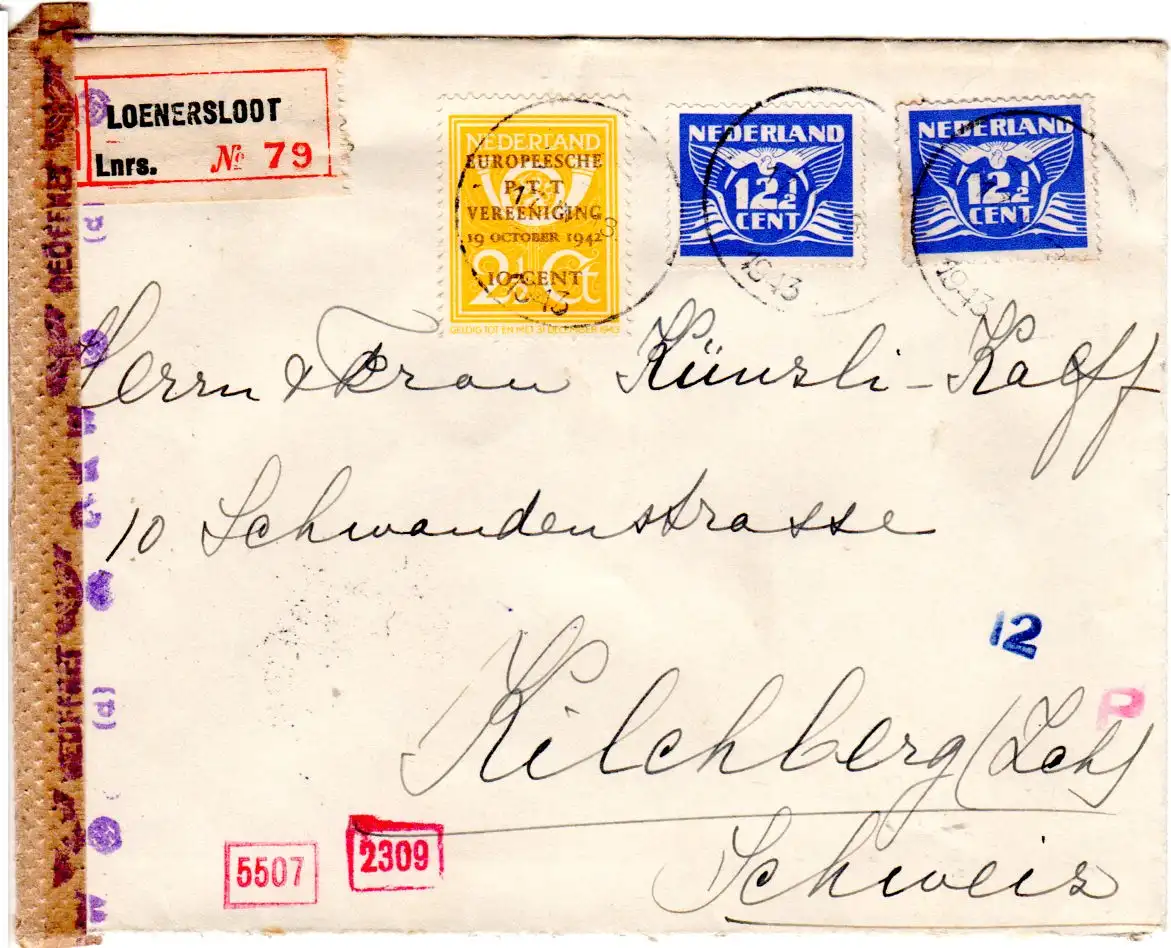 LOENERSLOOT
Lnrs. № 79
NEDERLAND
EUROPEESCHE
P.T.T
VEREENIGING
19 OCTOBER 1942
10 CENT
2½ Ct
GELDIG TOT EN MET 31 DECEMBER 1943
1943
NEDERLAND
12½
CENT
1943
NEDERLAND
12½
CENT
1943
Herrn & Frau Künzli-Kaeff
10 Schwandenstrasse
12
P
Kilchberg (Zch)
Schweiz
5507
2309
GEÖFFNET
GEÖFFNET
(d)
(d)